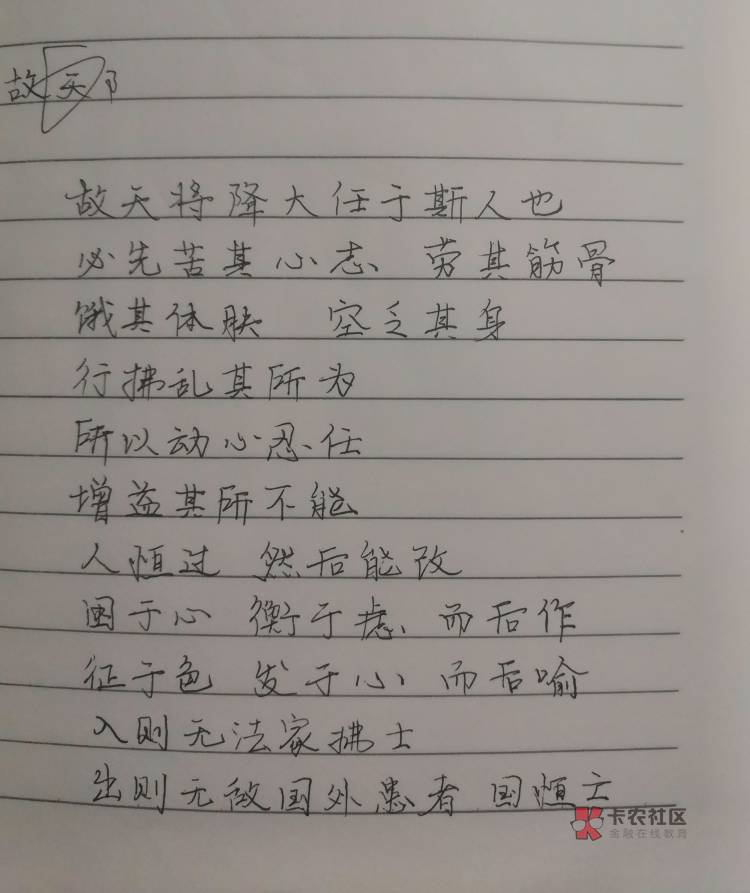 故天
故天将降大任于斯人也
必先苦其心志、劳其筋骨
饿其体肤 空乏其身
行拂乱其所为
所以动心忍任
增益其所不能
人恒过 然后能改
困于心 衡于虑、而后作
征于色 发于心 而后喻
入则无法家拂士
出则无敌国外患者 国恒亡
卡农社区
金融在线教育